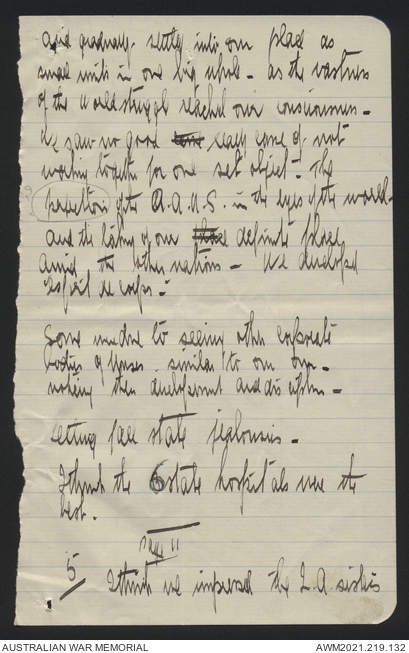 and gradually settly into our place as
small units in one big whole - as the vastness
of the World struggle reached our consciousness -
We saw no good really come of not
working together for one set object - The
perfection of the A.A.N.S. in the eyes of the world -
and the taking of our definite place
amid the other nations - We developed
Esprit de corps -
Some was due to seeing other corporate
bodies of Nurses similar to our own -
noticing their development and discipline -
Letting fall state jealousies -
I think the 6 state hospitals were the
best.
Page 11
5 I think we impressed the I.A. sisters
AUSTRALIAN WAR MEMORIAL AWM2021.219.132